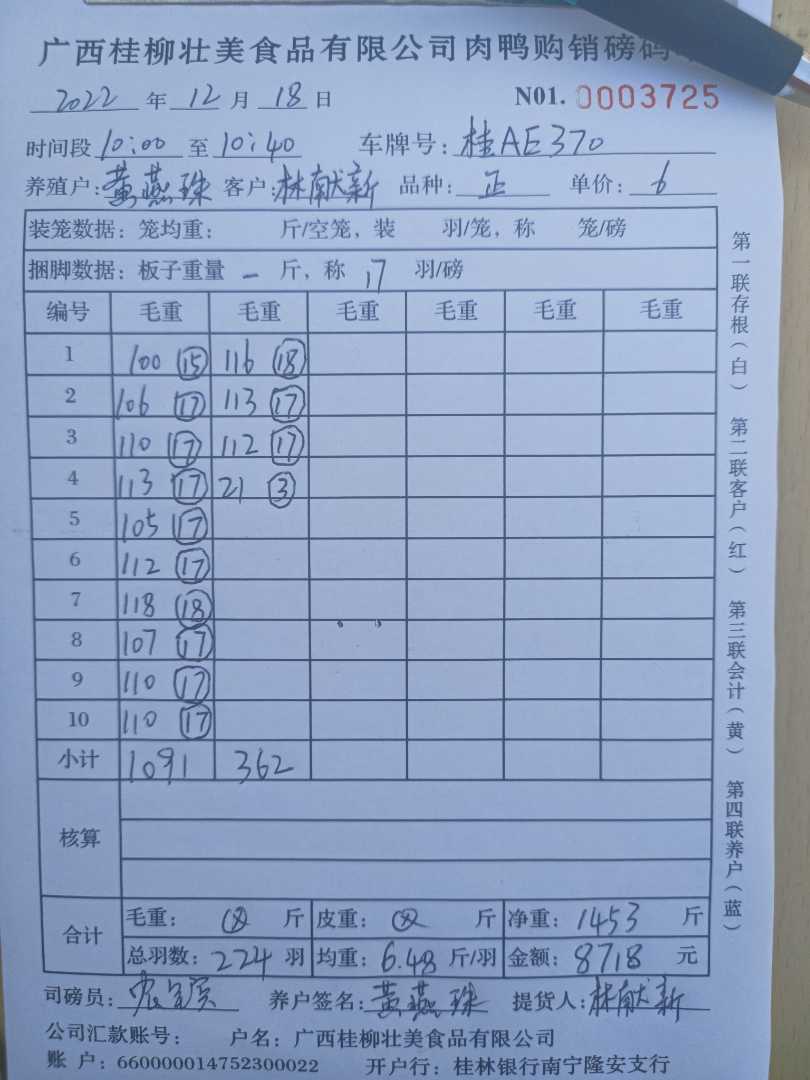 广西桂柳壮美食品有限公司肉鸭购销磅码
2022 年 12 月 18 日 N01. 0003725
时间段 10:00 至 10:40 车牌号: 桂AE370
养殖户: 黄燕珠 客户: 林献新 品种: 正 单价: 6
装笼数据: 笼均重: 斤/空笼, 装 羽/笼, 称 笼/磅
捆脚数据: 板子重量 一 斤, 称 17 羽/磅
编号 毛重 毛重 毛重 毛重 毛重 毛重
1 100 ⑮ 116 ⑱
2 106 ⑰ 113 ⑰
3 110 ⑰ 112 ⑰
4 113 ⑰ 21 ③
5 105 ⑰
6 112 ⑰
7 118 ⑱
8 107 ⑰
9 110 ⑰
10 110 ⑰
小计 1091 362
核算
合计 毛重: 斤 皮重: 斤 净重: 1453 斤
总羽数: 224 羽 均重: 6.48 斤/羽 金额: 8718 元
司磅员: 养户签名: 黄燕珠 提货人: 林献新
公司汇款账号: 户名: 广西桂柳壮美食品有限公司
账 户: 660000014752300022 开户行: 桂林银行南宁隆安支行
第一联存根(白) 第二联客户(红) 第三联会计(黄) 第四联养户(蓝)